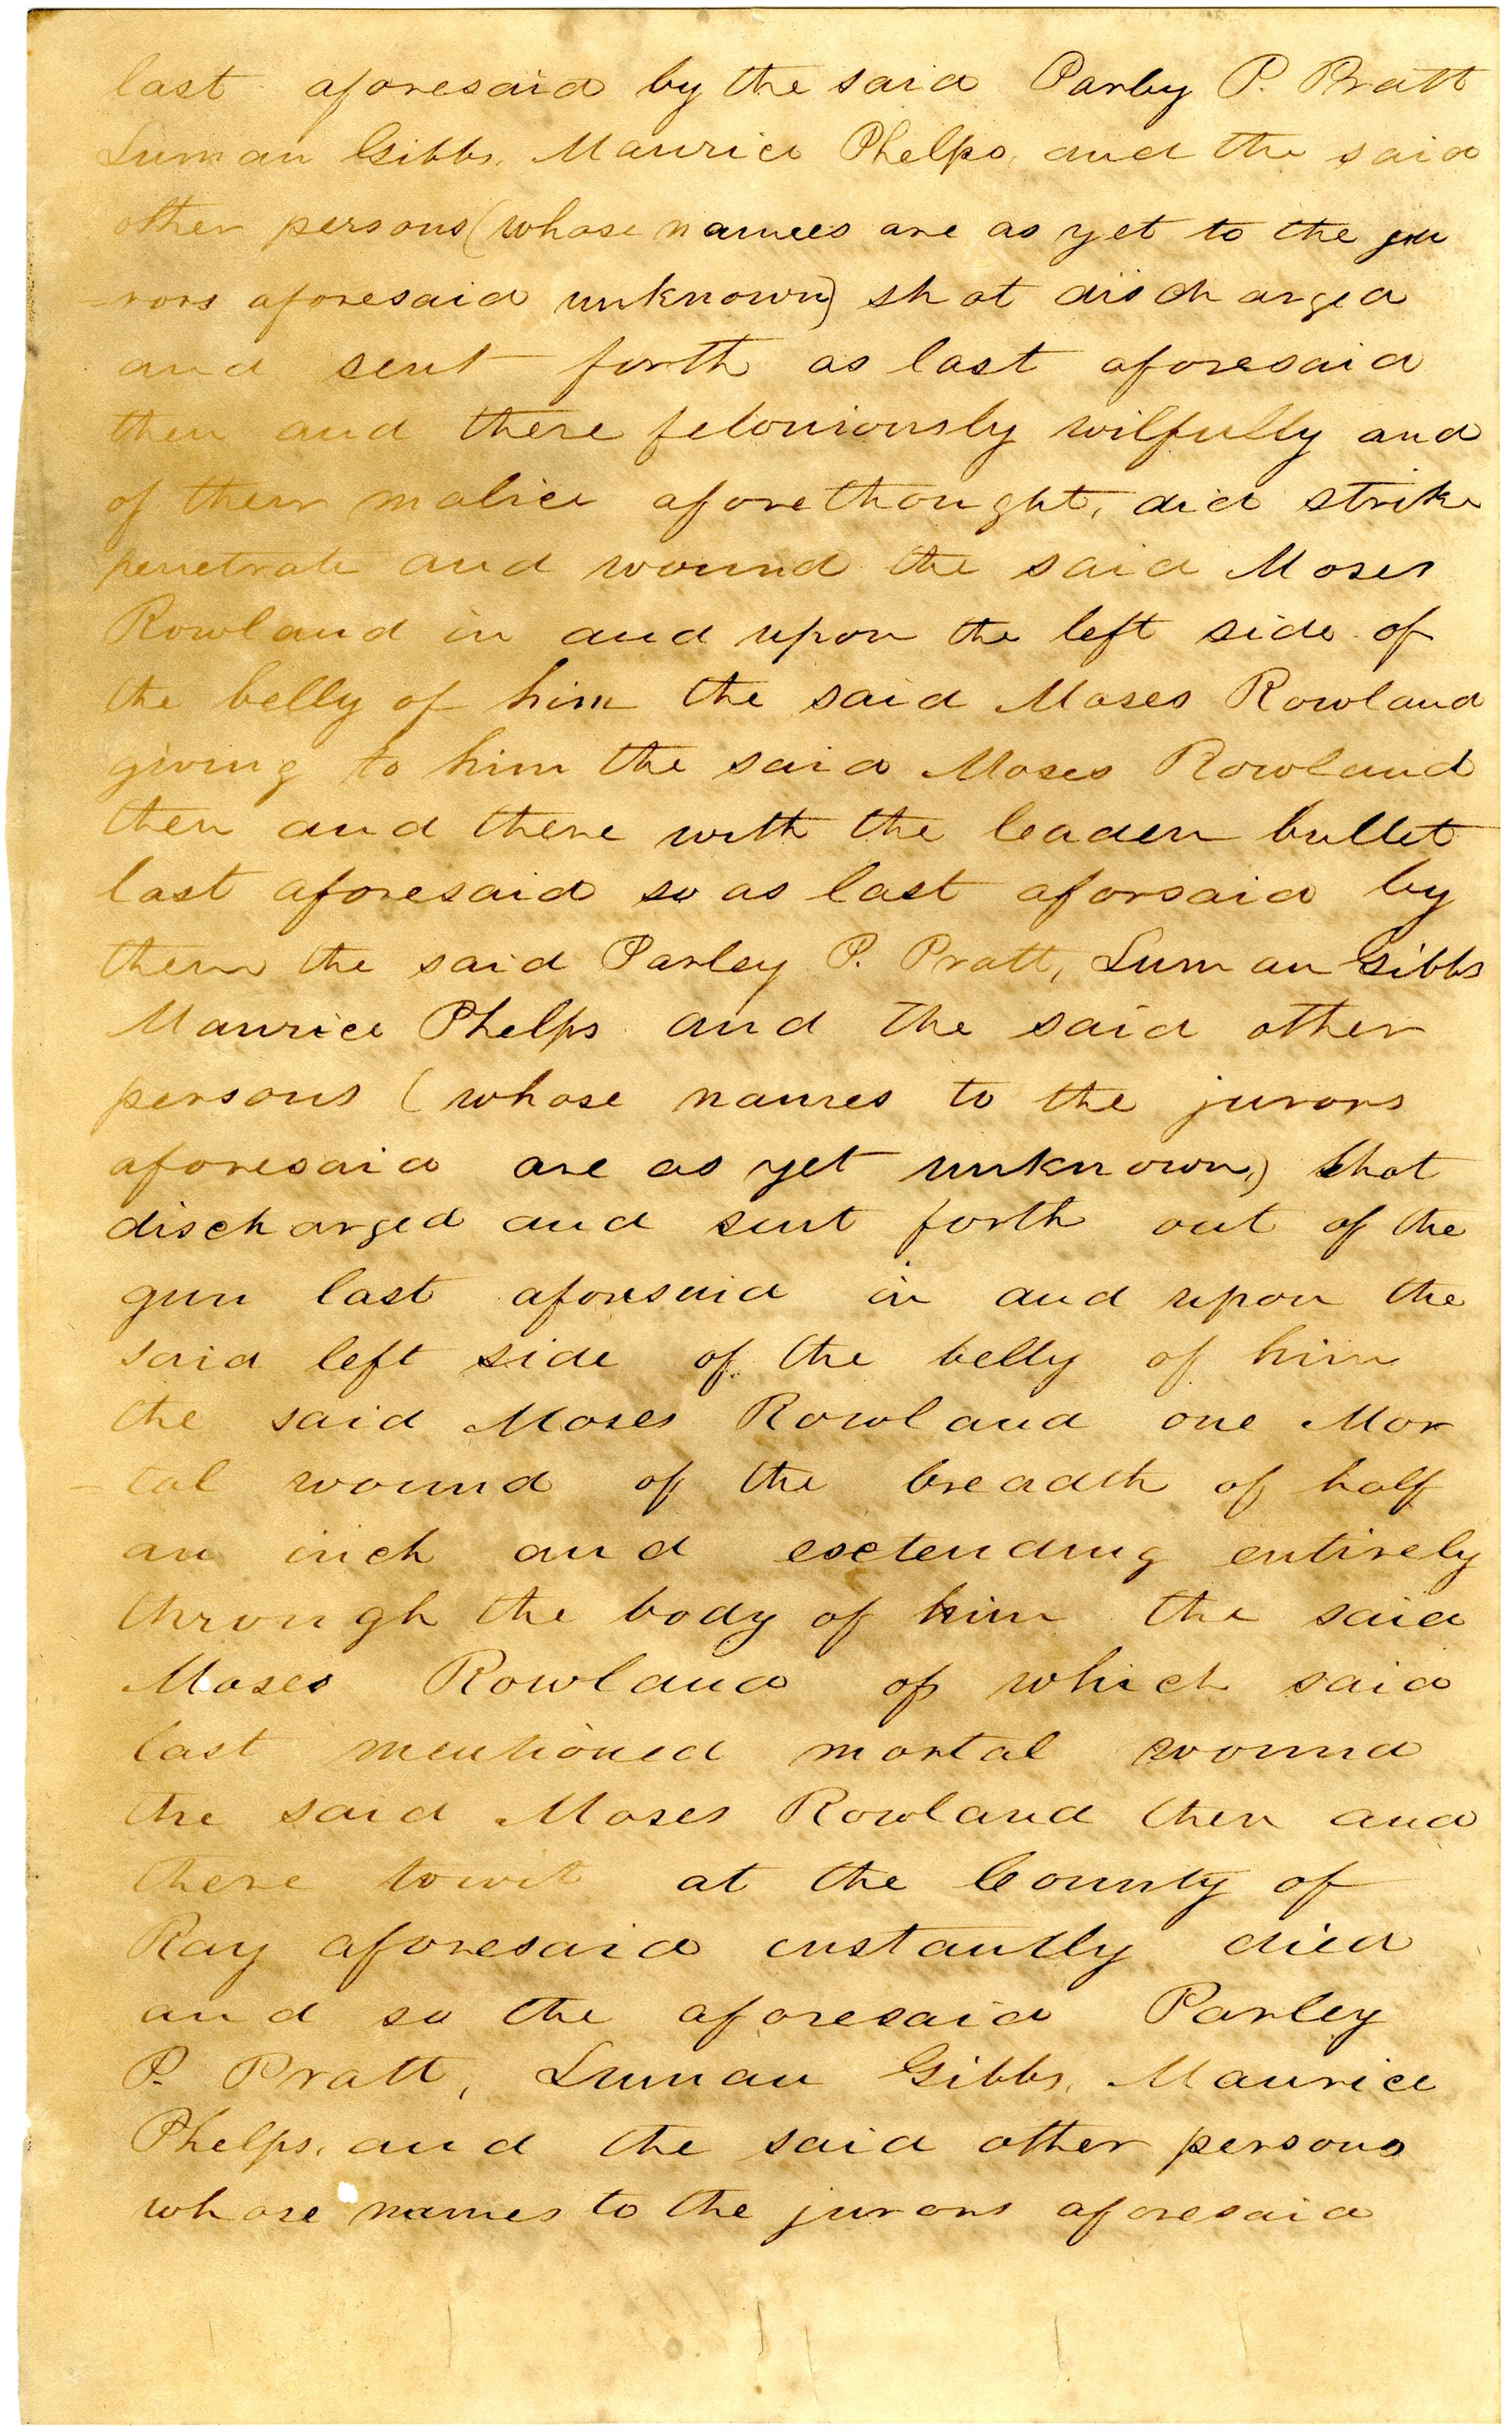 last aforesaid by the said Parley P. Pratt
Luman Gibbs, Maurice Phelps, and the said
other persons (whose names are as yet to the ju
-rors aforesaid unknown) shot discharged
and sent forth as last aforesaid
then and there feloniously wilfully and
of their malice aforethought, did strike
penetrate and wound the said Moses
Rowland in and upon the left side of
the belly of him the said Moses Rowland
giving to him the said Moses Rowland
then and there with the leaden bullet
last aforesaid so as last aforsaid by
them the said Parley P. Pratt, Luman Gibbs
Maurice Phelps and the said other
persons (whose names to the jurors
aforesaid are as yet unknown,) shot
discharged and sent forth out of the
gun last aforesaid in and upon the
said left side of the belly of him
the said Moses Rowland one Mor
-tal wound of the breadth of half
an inch and extending entirely
through the body of him the said
Moses Rowland of which said
last mentioned mortal wound
the said Moses Rowland then and
there towit at the County of
Ray aforesaid instantly died
and so the aforesaid Parley
P. Pratt, Luman Gibbs, Maurice
Phelps, and the said other persons
whose names to the jurors aforesaid